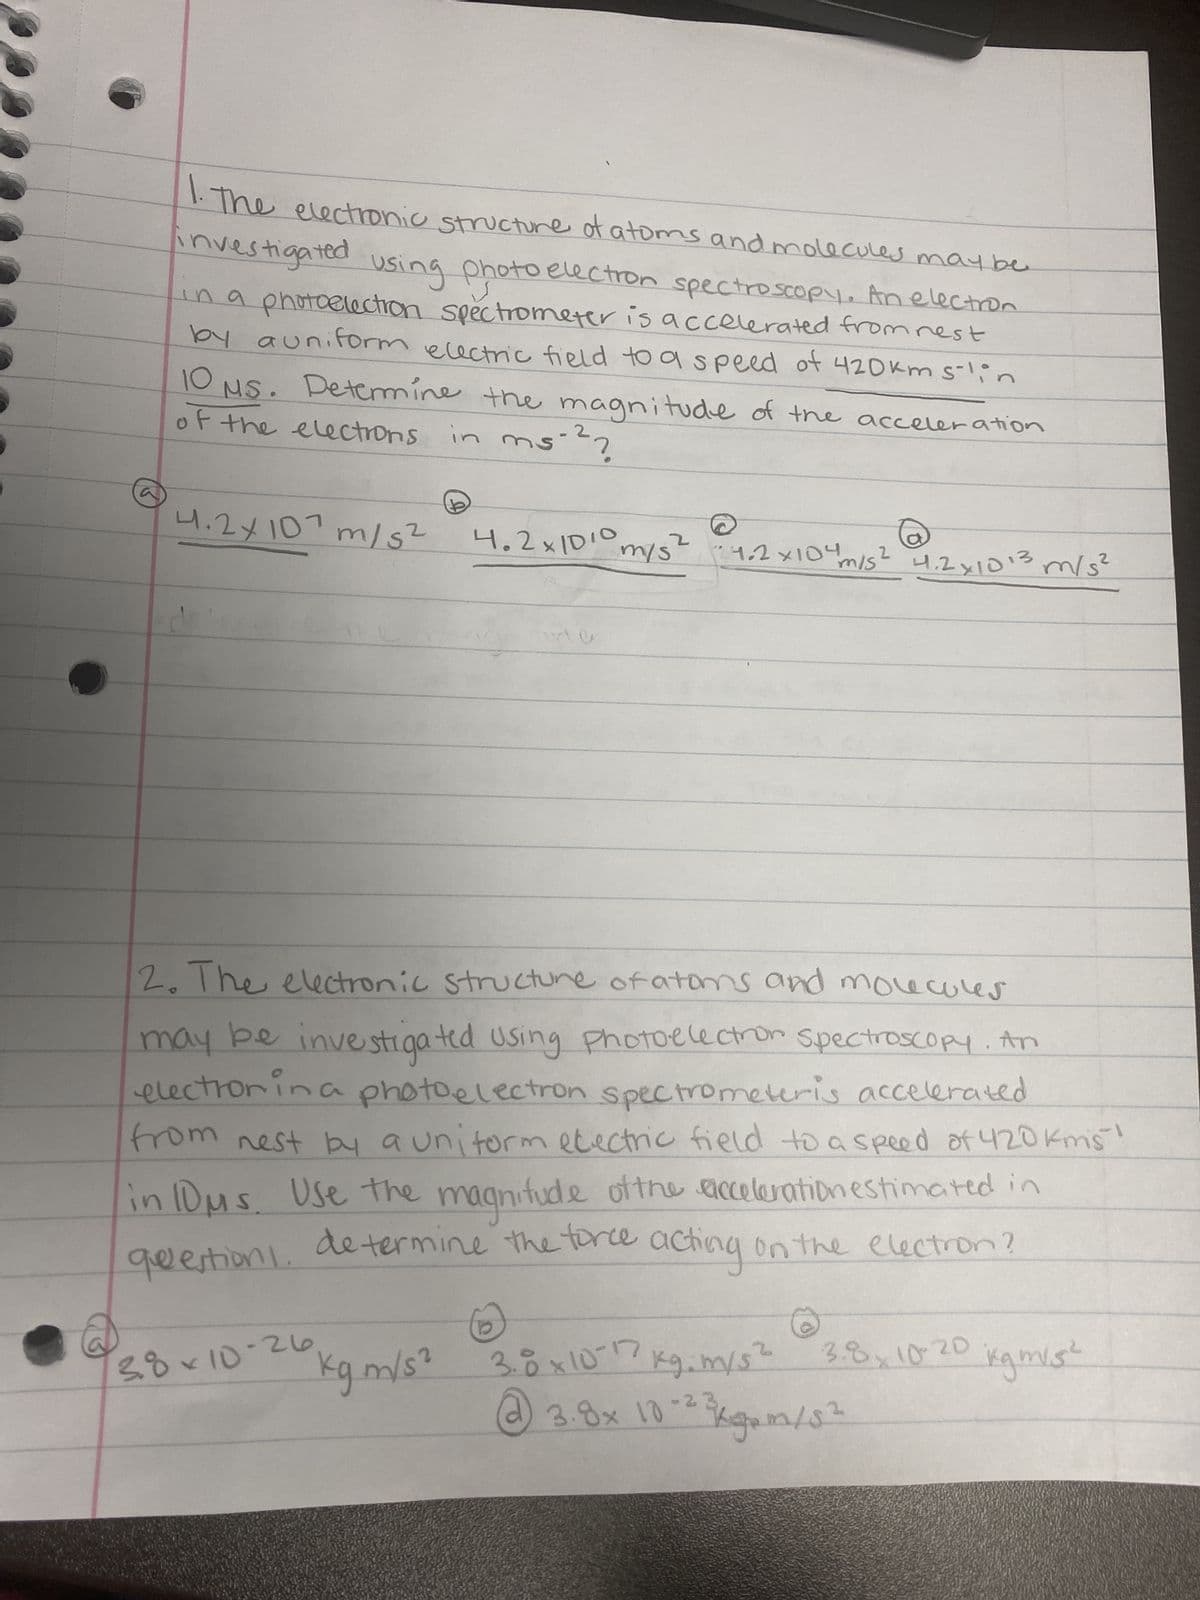 1. The electronic structure of atoms and molecules may be
investigated using photoelectron spectroscopy. An electron
in a photoelectron spectrometer is accelerated from rest
by a uniform electric field to a speed of 420km s-1 in
10 μs. Determine the magnitude of the acceleration
of the electrons in ms-2?
ⓐ 4.2x10⁷ m/s² ⓑ 4.2x10¹⁰ m/s² ⓒ 4.2x10⁴ m/s² ⓓ 4.2x10¹³ m/s²
2. The electronic structure of atoms and molecules
may be investigated using photoelectron spectroscopy. An
electron in a photoelectron spectrometer is accelerated
from rest by a uniform electric field to a speed of 420 Kms-1
in 10μs. Use the magnitude of the acceleration estimated in
question 1. determine the force acting on the electron?
ⓐ 3.8x10⁻²⁶ kg m/s² ⓑ 3.8x10⁻¹⁷ kg.m/s² ⓒ 3.8x10⁻²⁰ kgm/s²
ⓓ 3.8x 10⁻²³ kg.m/s²